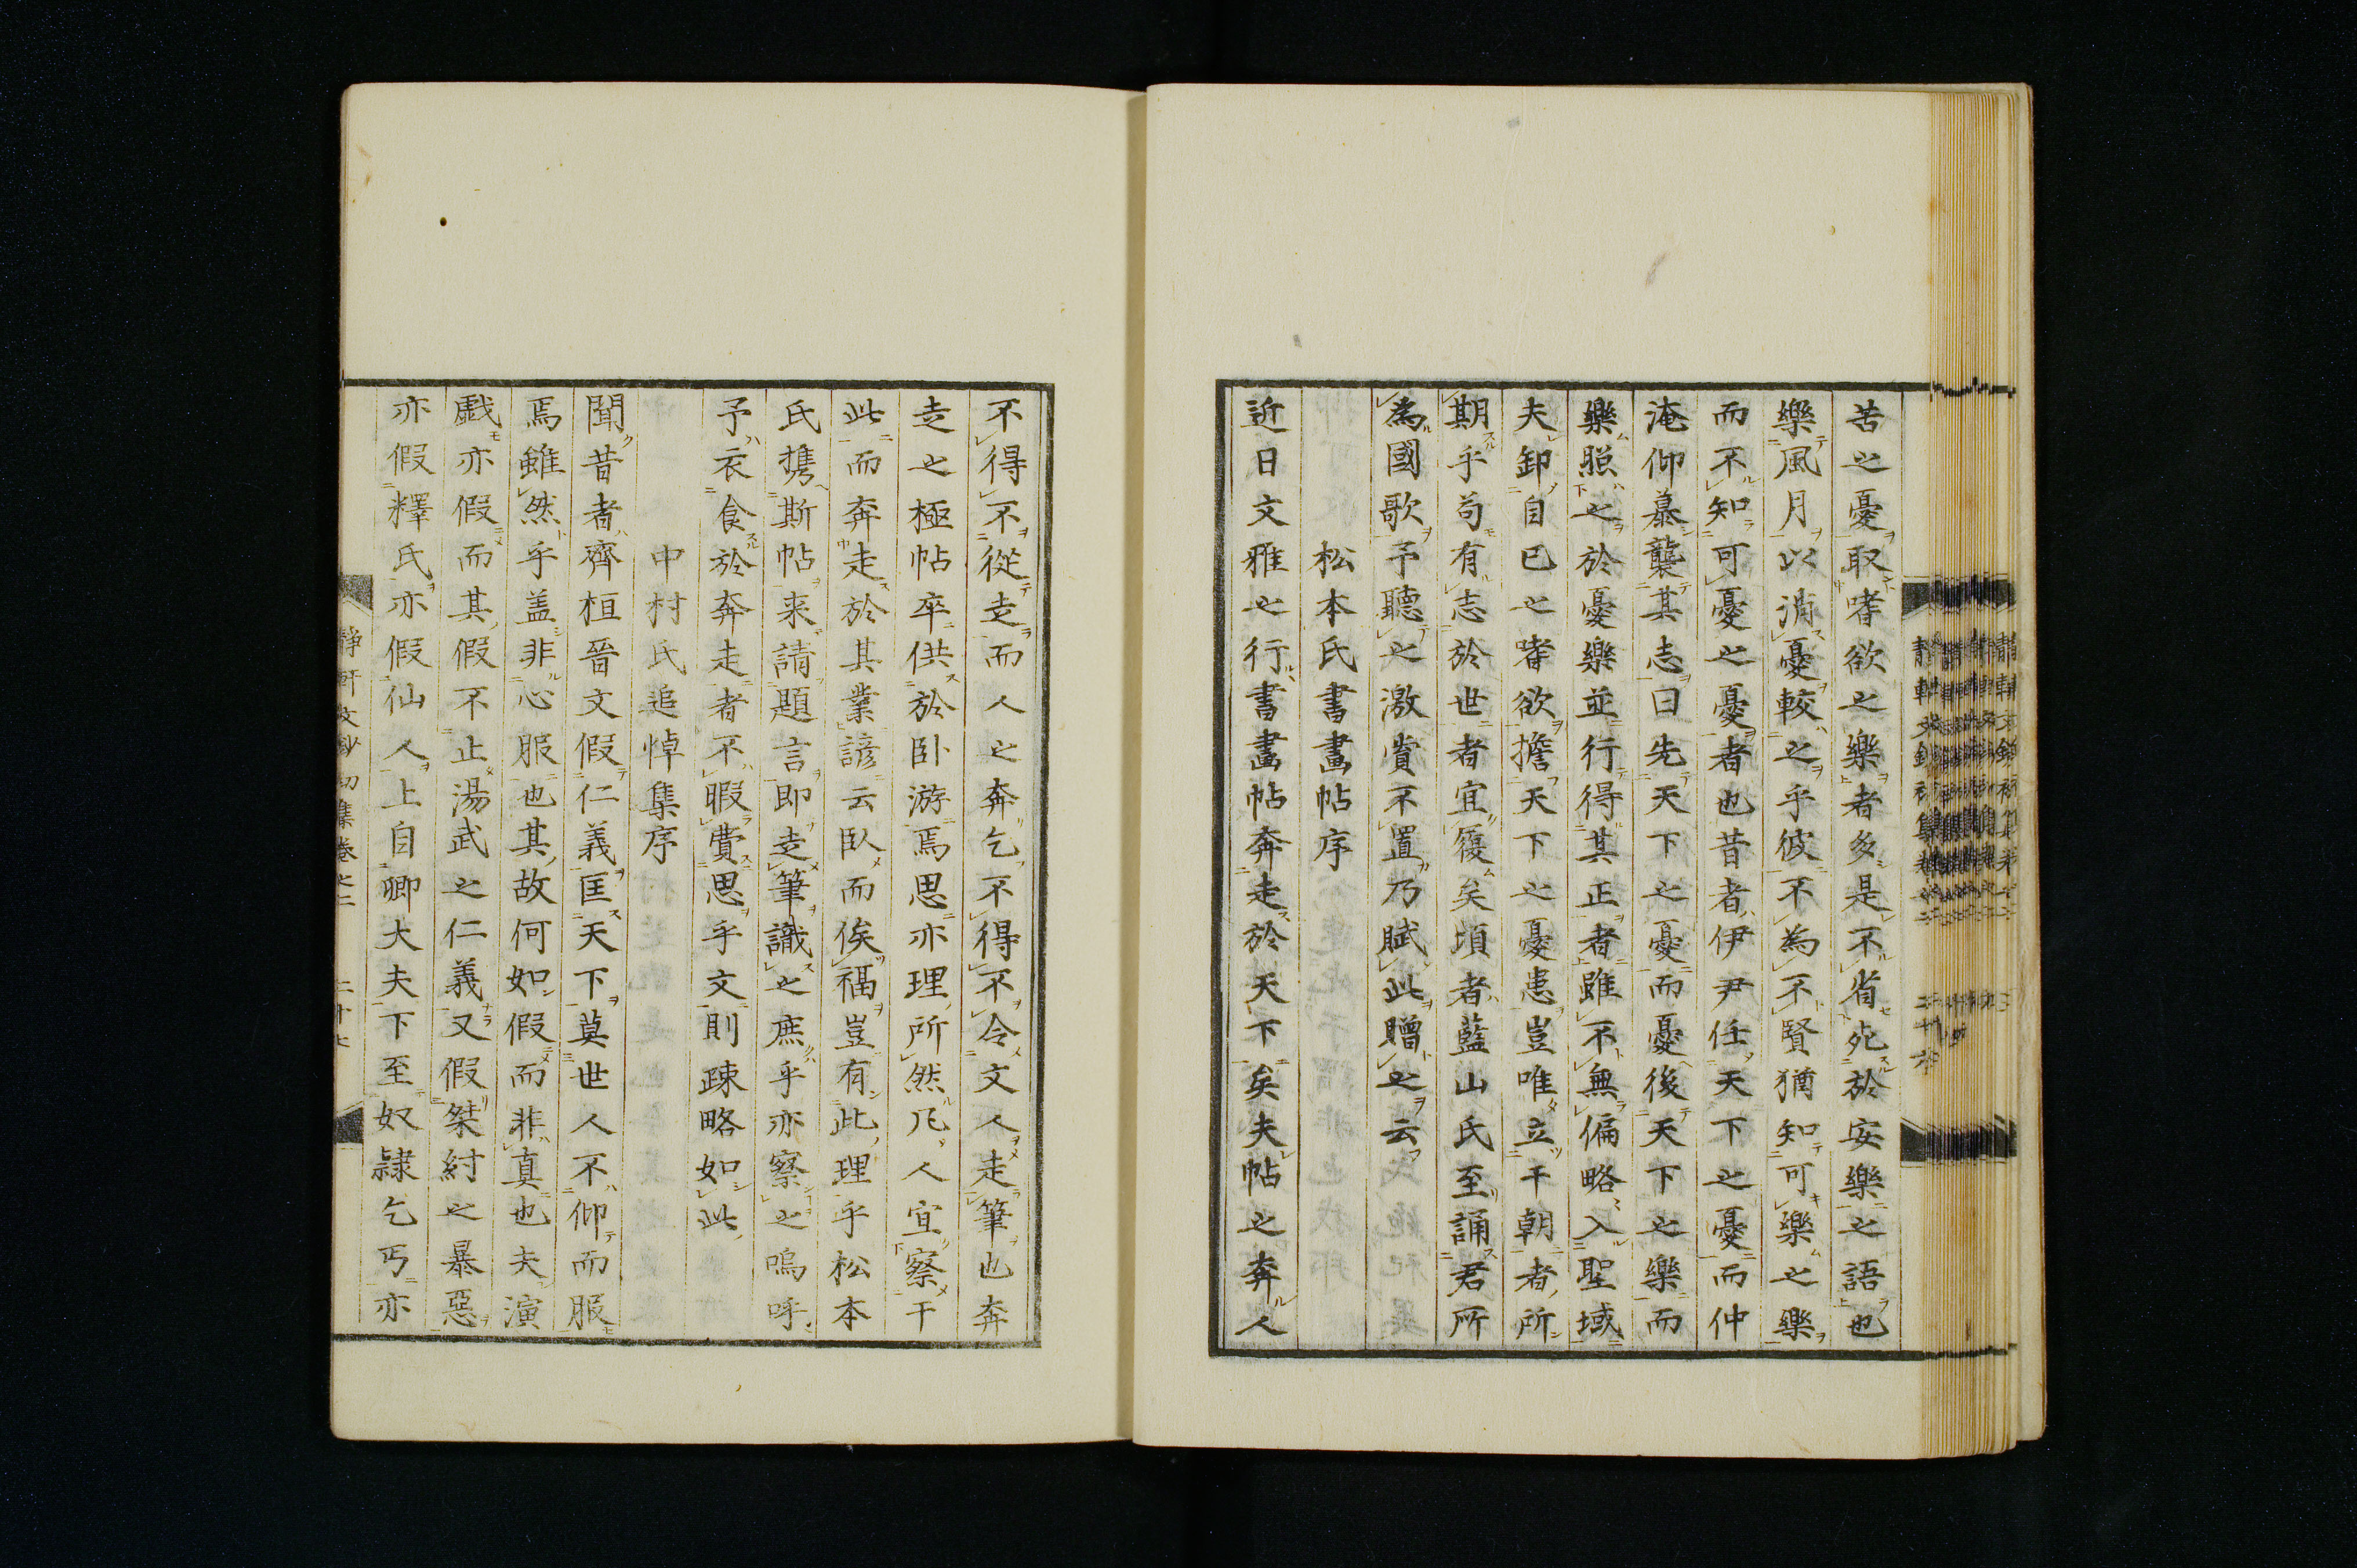 苦之憂取嗜欲之樂者多是不省㐫於安樂之語也
樂風月以消憂較之乎彼不為不賢猶知可樂之樂
而不知可憂之憂者也昔者伊尹任天下之憂而仲
淹仰慕襲其志曰先天下之憂而憂後天下之樂而
樂照之於憂樂並行得其正者雖不無偏略入聖域
夫卸自已之嗜欲擔天下之憂患豈唯立干朝者所
期乎苟有志於世者宜履矣頃者藍山氏至誦君所
為國歌予聽之激賞不置乃賦此贈之云
松本氏書畫帖序
近日文雅之行書畫帖奔走於天下矣夫帖之奔人
不得不從走而人之奔乞不得不令文人走筆也奔
走之極帖卒供於卧游焉思亦理所然凡人宜察干
此而奔走於其業諺云臥而俟福豈有此理乎松本
氏携斯帖来請題言即走筆識之庶乎亦察之嗚呼
予衣食於奔走者不暇費思乎文則踈略如此
中村氏追悼集序
聞昔者齊桓晉文假仁義匡天下莫世人不仰而服
焉雖然乎盖非心服也其故何如假而非真也夫演
戲亦假而其假不止湯武之仁義又假桀紂之暴惡
亦假釋氏亦假仙人上自卿大夫下至奴隷乞丐亦
静軒文鈔初集卷之二 二十七